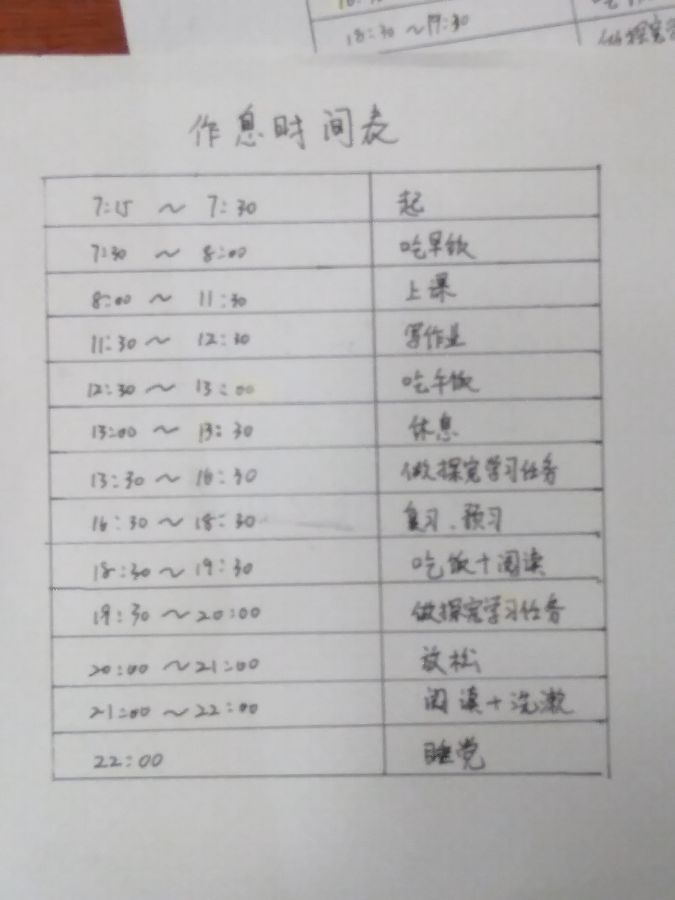 18:30 ~19:30
作息时间表
7:15 ~ 7:30 起
7:30 ~ 8:00 吃早饭
8:00 ~ 11:30 上课
11:30 ~ 12:30 写作业
12:30 ~ 13:00 吃午饭
13:00 ~ 13:30 休息
13:30 ~ 16:30 做探究学习任务
16:30 ~ 18:30 复习、预习
18:30 ~ 19:30 吃饭+阅读
19:30 ~ 20:00 做探究学习任务
20:00 ~21:00 放松
21:00 ~22:00 阅读+洗漱
22:00 睡觉